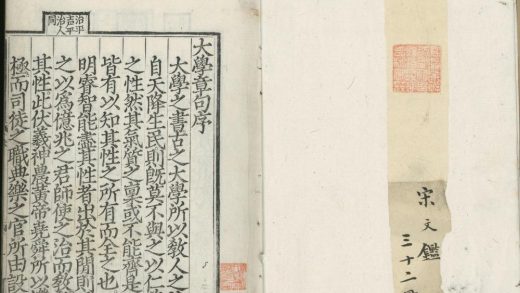 宋文鑑
三十二
大學章句序
大學之書古之大學所以教人之
自天降生民則既莫不與之以仁
之性然其氣質之稟或不能齊是
皆有以知其性之所有而全之也
明睿智能盡其性者出於其閒則
之以爲億兆之君師使之治而教
其性此伏羲神農黃帝堯舜所以
極而司徒之職典樂之官所由設